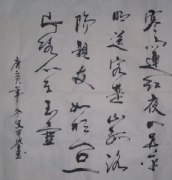 寒雨連江夜入吳平
明送客楚山孤洛
陽親友如相問一
片冰心在玉壺
庚寅年冬